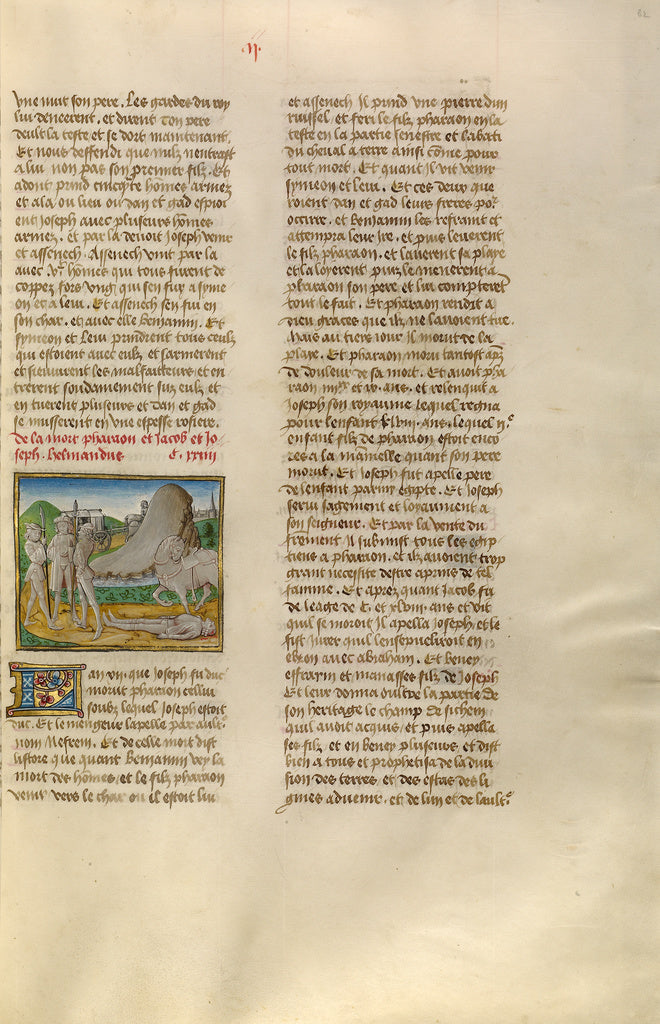 .ii.
vne nuit son pere. Les gardes du roy
lui dencerent. et dirent ton pere
deult la teste et se dort maintenant.
Et nous deffendi que nulz nentrast
a lui non pas son premier filz. Et
adont prind cincqte homes armez
et ala ou lieu ou dan et gad espioi
ent Joseph auec plusieurs homes
armez. et par la deuoit Joseph venir
et assenech. Assenech vint par la
auec homes qui tous furent de
coppez fors vng qui sen fuy a syme
on et a leui. Et assenech sen fui en
son char. et auec elle Beniamin. Et
symeon et Leui prindrent tous ceulz
qui estoient auec eulz et sarmerent
et sieuuirent les malfaitteurs et en
trerent soudainement suz eulz et
en tuerent plusieurs et Dan et gad
se musserent en vne espesse rosiere.
De la mort pharaon et Jacob et Jo
seph. helmandus C. xxiii
an vii. que Joseph fu duc
morut pharaon cellui
soubz lequel Joseph estoit
duc. Et le mengeur lapelle par ault.
nom Nefrem. Et de celle mort dist
listore que quant Beniamin vey la
mort des homes. et le filz pharaon
venir vers le char ou il estoit lui
et assenech Il prind vne pierre dun
ruissel. et feri le filz pharaon en la
teste en la partie senestre et labati
du cheual a terre ainsi come pour
tout mort. Et quant il vit venir
symeon et leui. Et ces deux que
voient dan et gad leurs freres por
occirre. et Beniamin les refraint et
attempra leur ire. et puis leuerent
le filz pharaon. et lauerent sa playe
et la loyerent puiz le menerent a
pharaon son pere et lui compterent
tout le fait. Et pharaon rendit a
dieu graces que ilz ne lauoient tue.
Mais au tiers iour il morut de la
playe. Et pharaon moru tantost apz
de douleur de sa mort. Et auoit pha
raon ans. et relenquit a
Joseph son royaume lequel regna
pour lenfant xlviii. ans. lequel
enfant filz de pharaon estoit enco
res a la mamelle quant son pere
morut. Et Joseph fut apelle pere
de lenfant parmy egipte. Et Joseph
serui sagement et loyaument a
son seigneur. Et par la vente du
frement Il submist tous les egip
tiens a pharaon. et ilz auoient trop
grant necesite destre aprins de tel
famine. Et aprez quant Jacob fu
de leage de C. et xlvii. ans et dit
quil se moroit Il apella Joseph. et le
fist iurer quil lenseueliroit en
ebron auec abraham. Et beney
effrayin et manasses filz de Joseph
Et leur donna oultre la partie de
son heritage le champ de sichem
quil auoit acquis. et puis apella
ses filz. et en beney plusieurs. et dist
bien a tous et prophetisa de la diui
sion des terres. et des estas des li
gnies aduenir. et de lun et de lault.